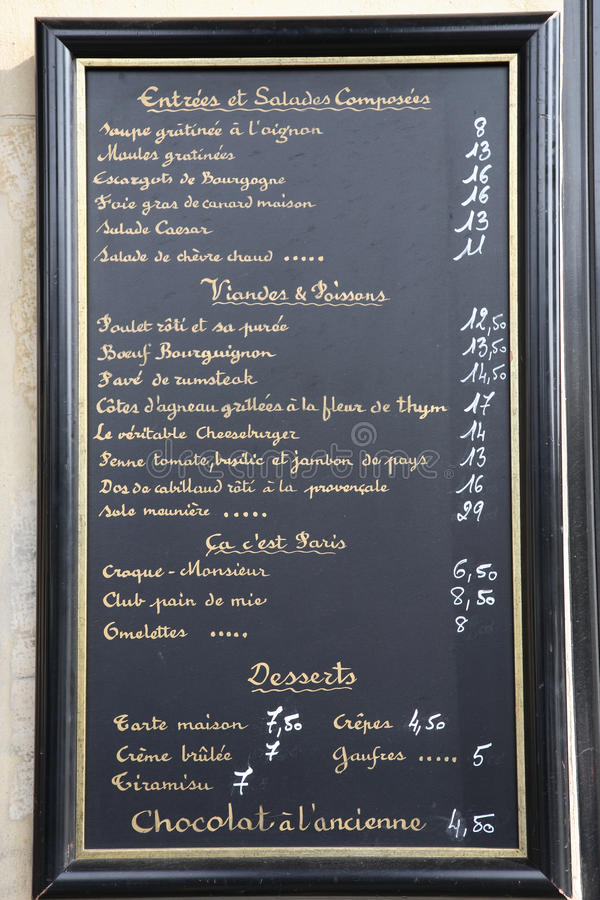 Entrées et Salades Composées
Soupe gratinée à l'oignon 8
Moules gratinées 13
Escargots de Bourgogne 16
Foie gras de canard maison 16
Salade Caesar 13
Salade de chèvre chaud ..... 11
Viandes & Poissons
Poulet rôti et sa purée 12,50
Bœuf Bourguignon 13,50
Pavé de rumsteak 14,50
Côtes d'agneau grillées à la fleur de thym 17
Le véritable Cheeseburger 14
Penne tomate, basilic et jambon de pays 13
Dos de cabillaud rôti à la provençale 16
Sole meunière ..... 29
Ça c'est Paris
Croque-Monsieur 6,50
Club pain de mie 8,50
Omelettes ..... 8
Desserts
Tarte maison 7,50 Crêpes 4,50
Crème brûlée 7 Gaufres ..... 5
Tiramisu 7
Chocolat à l'ancienne 4,50
dreamstime